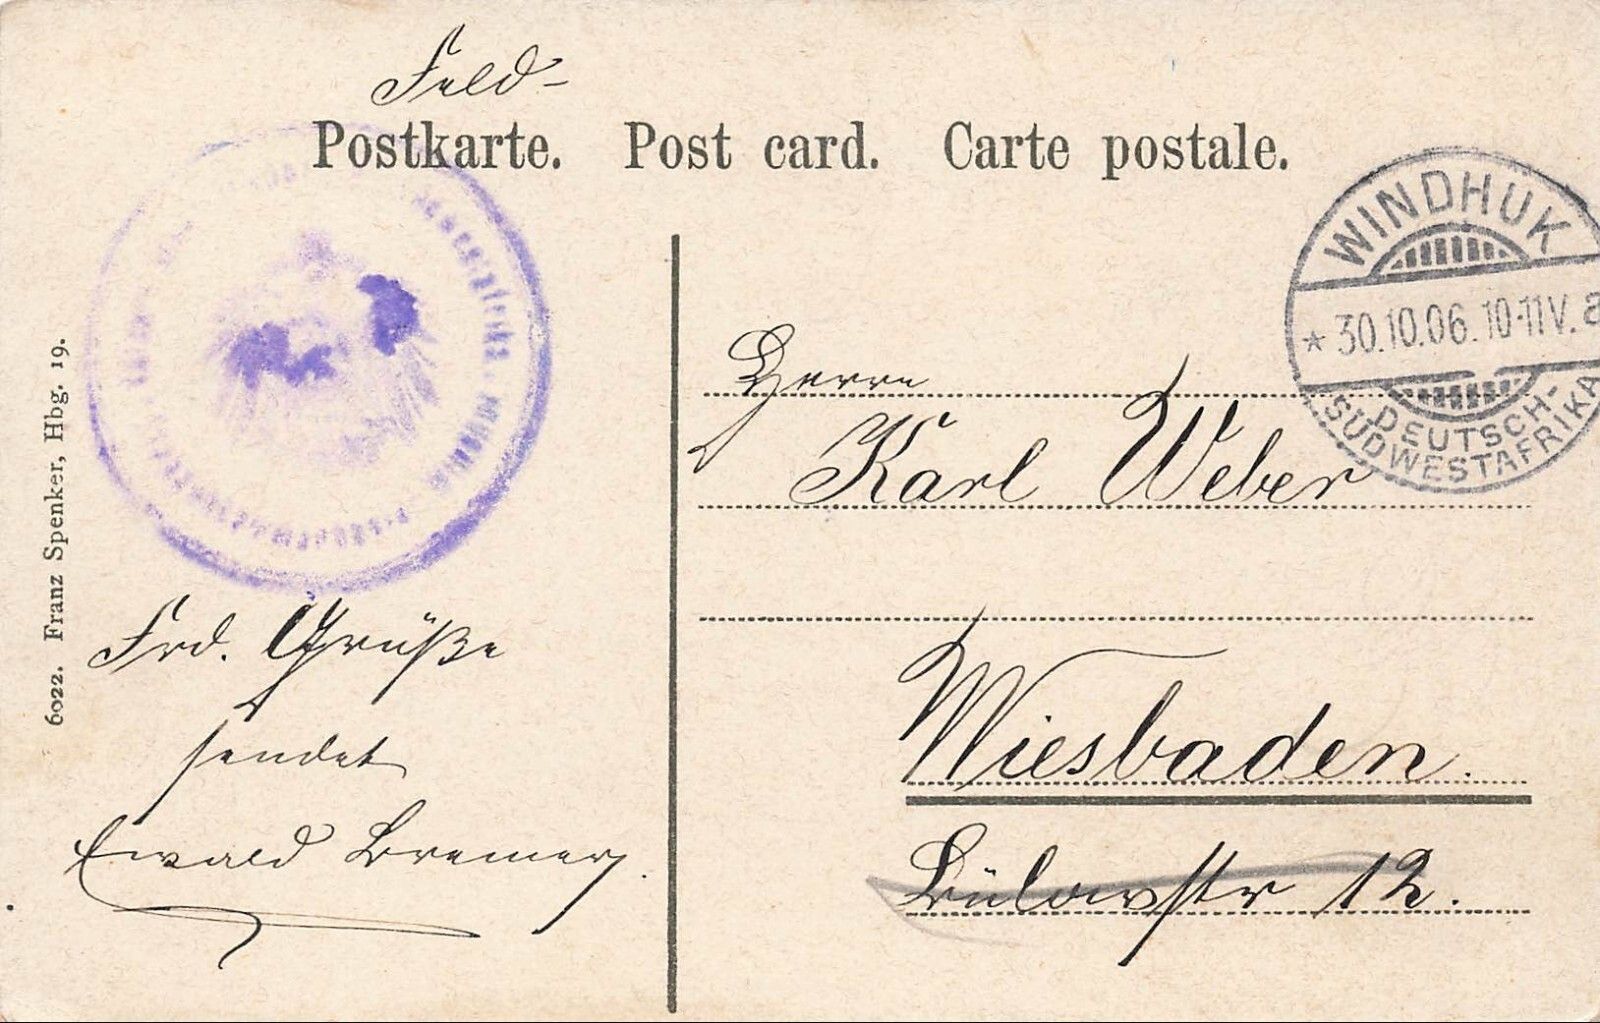 Feld-
Postkarte. Post card. Carte postale.
WINDHUK
* 30.10.06. 10-11V. a
DEUTSCH-
SÜDWESTAFRIKA
Herrn
Karl Weber
Wiesbaden.
Bülowstr 12.
Frd. Grüße
sendet
Ewald Bremer.
6022. Franz Spenker, Hbg. 19.